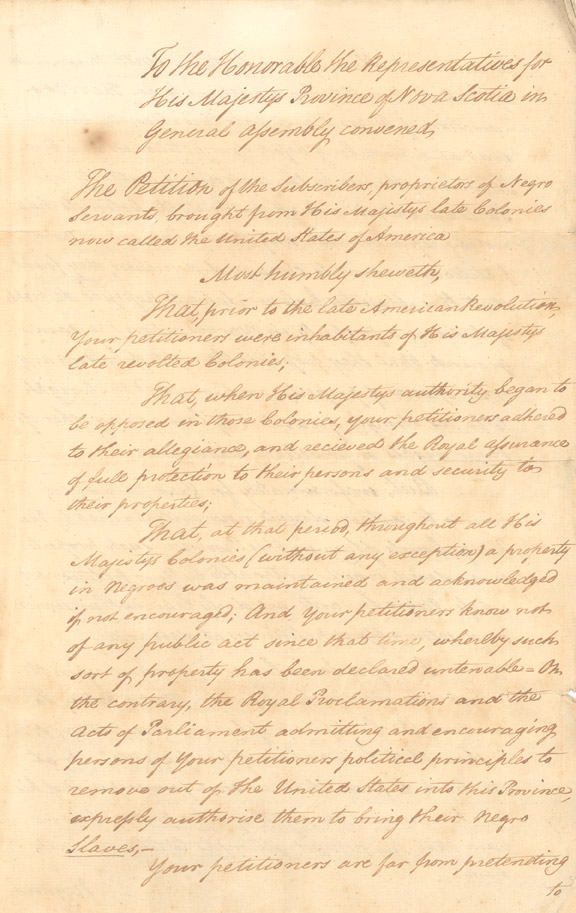 To the Honorable the Representatives for
His Majestys Province of Nova Scotia in
General assembly convened,
The Petition of the Subscribers, proprietors of Negro
Servants, brought from His Majestys late Colonies
now called the United States of America
Most humbly sheweth,
That, prior to the late American Revolution,
Your petitioners were inhabitants of His Majestys
late revolted Colonies;
That, when His Majestys authority began to
be opposed in those Colonies, your petitioners adhered
to their allegiance, and recieved the Royal assurance
of full protection to their persons and security to
their properties;
That, at that period, throughout all His
Majestys Colonies (without any exception) a property
in Negroes was maintained and acknowledged
if not encouraged; And Your petitioners know not
of any public act since that time, whereby such
sort of property has been declared untenable = On
the contrary, the Royal Proclamations and the
Acts of Parliament admitting and encouraging
persons of Your petitioners political principles to
remove out of the United States into this Province,
expressly authorise them to bring their Negro
Slaves,—
Your petitioners are far from pretending
to